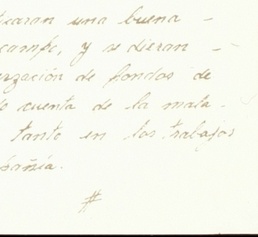 tizaran una buena -
campo, y se dieran -
ización de fondos de
cuenta de la mata-
tanto en los trabajos
pañía.
#